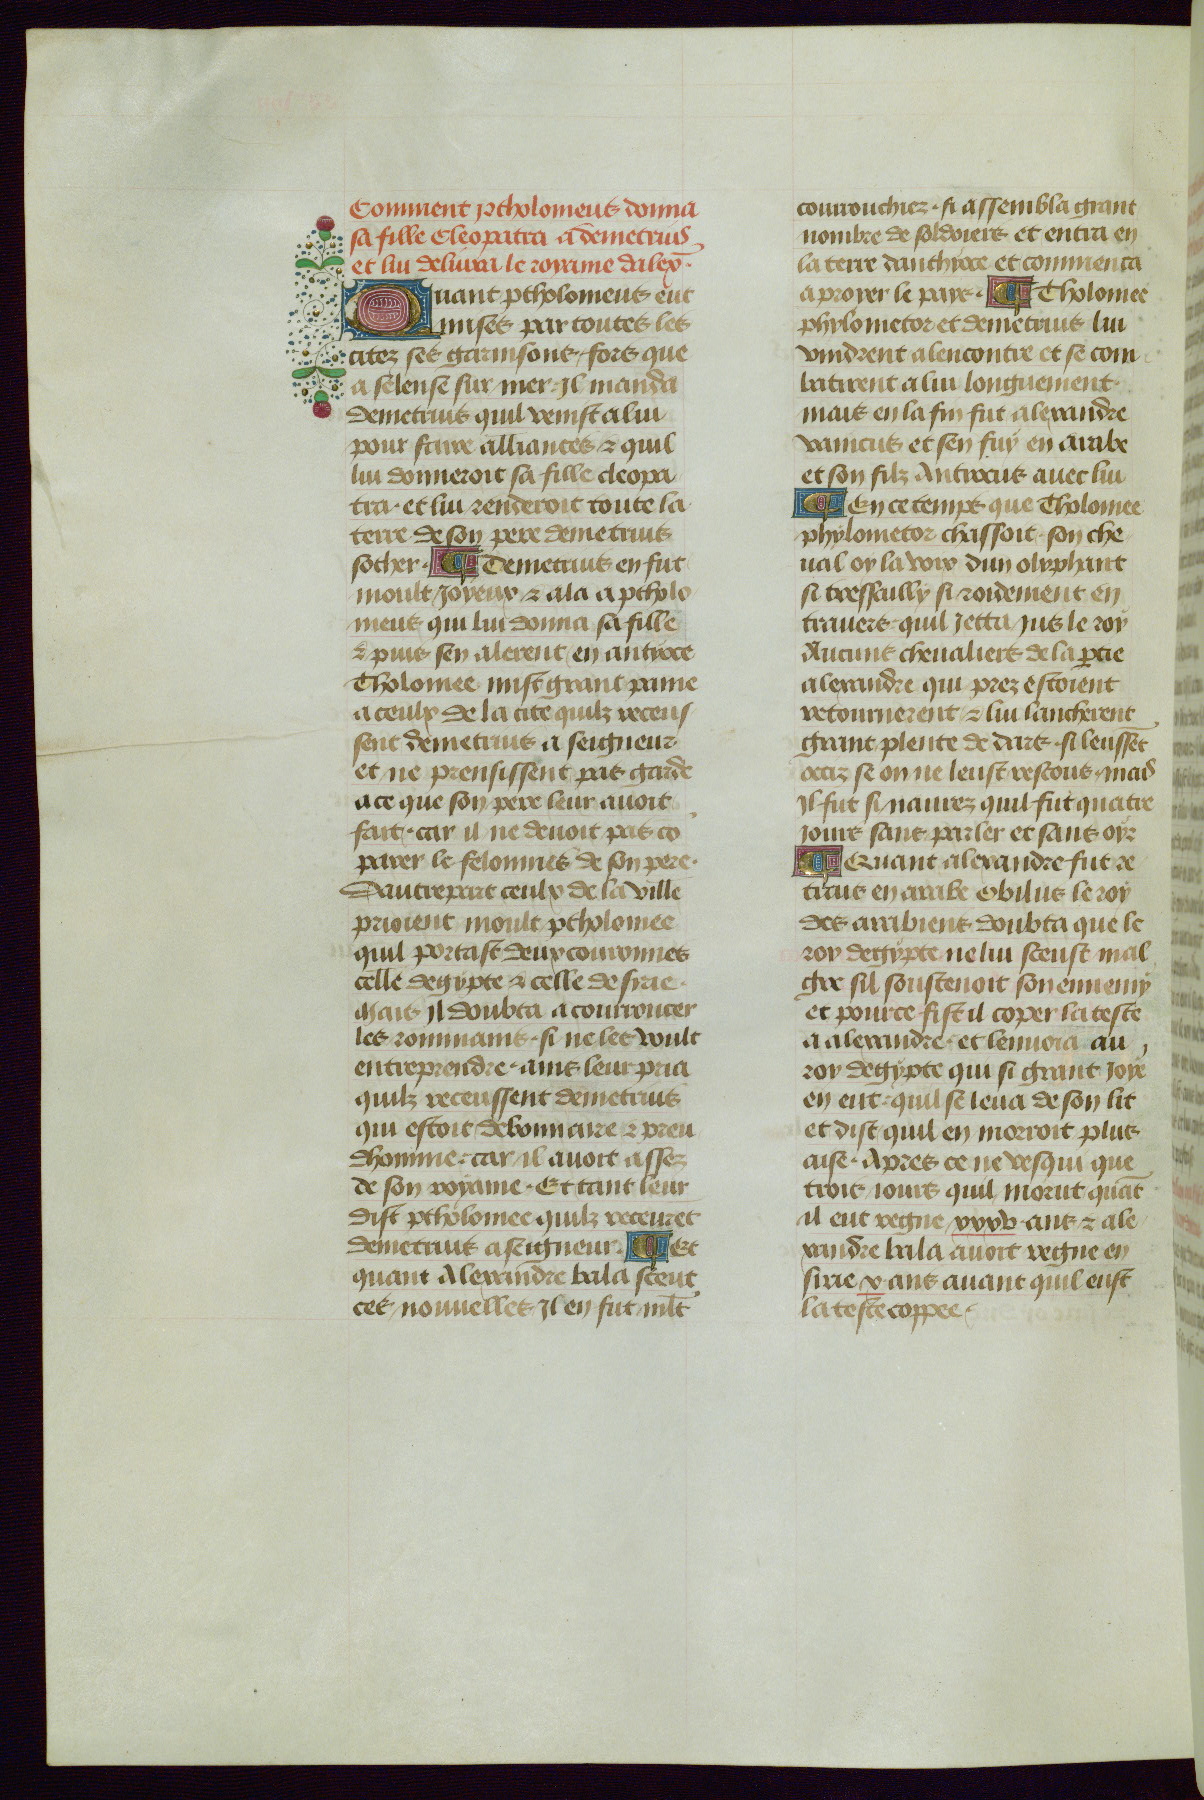 Comment ptholomeus donna
sa fille Cleopatra a demetrius
et lui deliura le royame dalex.
Quant ptholomeus eut
mises par toutes les
citez ses garnisons, fors que
a selense sur mer. Il manda
demetrius quil venist a lui
pour faire alliances ⁊ quil
lui donneroit sa fille cleopa
tra. et lui renderoit toute la
terre de son pere demetrius
sother. Demetrius en fut
moult joyeux ⁊ ala a ptholo
meus qui lui donna sa fille
⁊ puis sen alerent en antyoce
Tholomee mist grant paine
a ceulx de la cite quilz receus
sent demetrius a seigneur
et ne prensissent pas garde
a ce que son pere leur auoit
fait. car il ne deuoit pas co
parer le felonnies de son pere.
Dautrepart ceulx de la ville
prioient moult ptholomee
quil portast deux couronnes
celle degypte ⁊ celle de sirie.
Mais il doubta a courroucer
les rommains. si ne les voult
entreprendre. ains leur pria
quilz receussent demetrius
qui estoit debonnaire ⁊ preu
dhomme. car il auoit assez
de son royame. Et tant leur
dist ptholomee quilz receuret
demetrius a seigneur. Et
quant Alexandre bala sceut
ces nouuelles il en fut mlt
courrouchiez. si assembla grant
nombre de soldoiers et entra en
la terre danthyoce et commenca
a proyer le pays. Tholomee
phylometor et demetrius lui
vindrent alencontre et se com
batirent a lui longuement.
mais en la fin fut alexandre
vaincus et sen fuy en arabe
et son filz Antiocus auec lui
En ce temps que Tholomee
phylometor chassoit. son che
ual oy la voix dun olyphant
si tressailly si roidement en
trauers. quil jetta jus le roy
Aucuns cheualiers de la ptie
alexandre qui prez estoient
retournerent ⁊ lui lancherent
grant plente de dars. si leusset
occiz se on ne leust rescous. mais
il fut si naurez quil fut quatre
jours sans parler et sans oyr
Quant alexandre fut re
traiz en arabe Obilus le roy
des arrabiens doubta que le
roy degypte ne lui sceust mal
gre sil soustenoit son ennemy
et pource fist il coper la teste
a alexandre. et lenuoia au
roy degypte qui si grant joye
en eut. quil se leua de son lit
et dist quil en morroit plus
aise. Apres ce ne vesqui que
trois iours quil morut quat
il eut regne xxxv. ans ⁊ ale
xandre bala auoit regne en
sirie x. ans auant quil eust
la teste coppee.